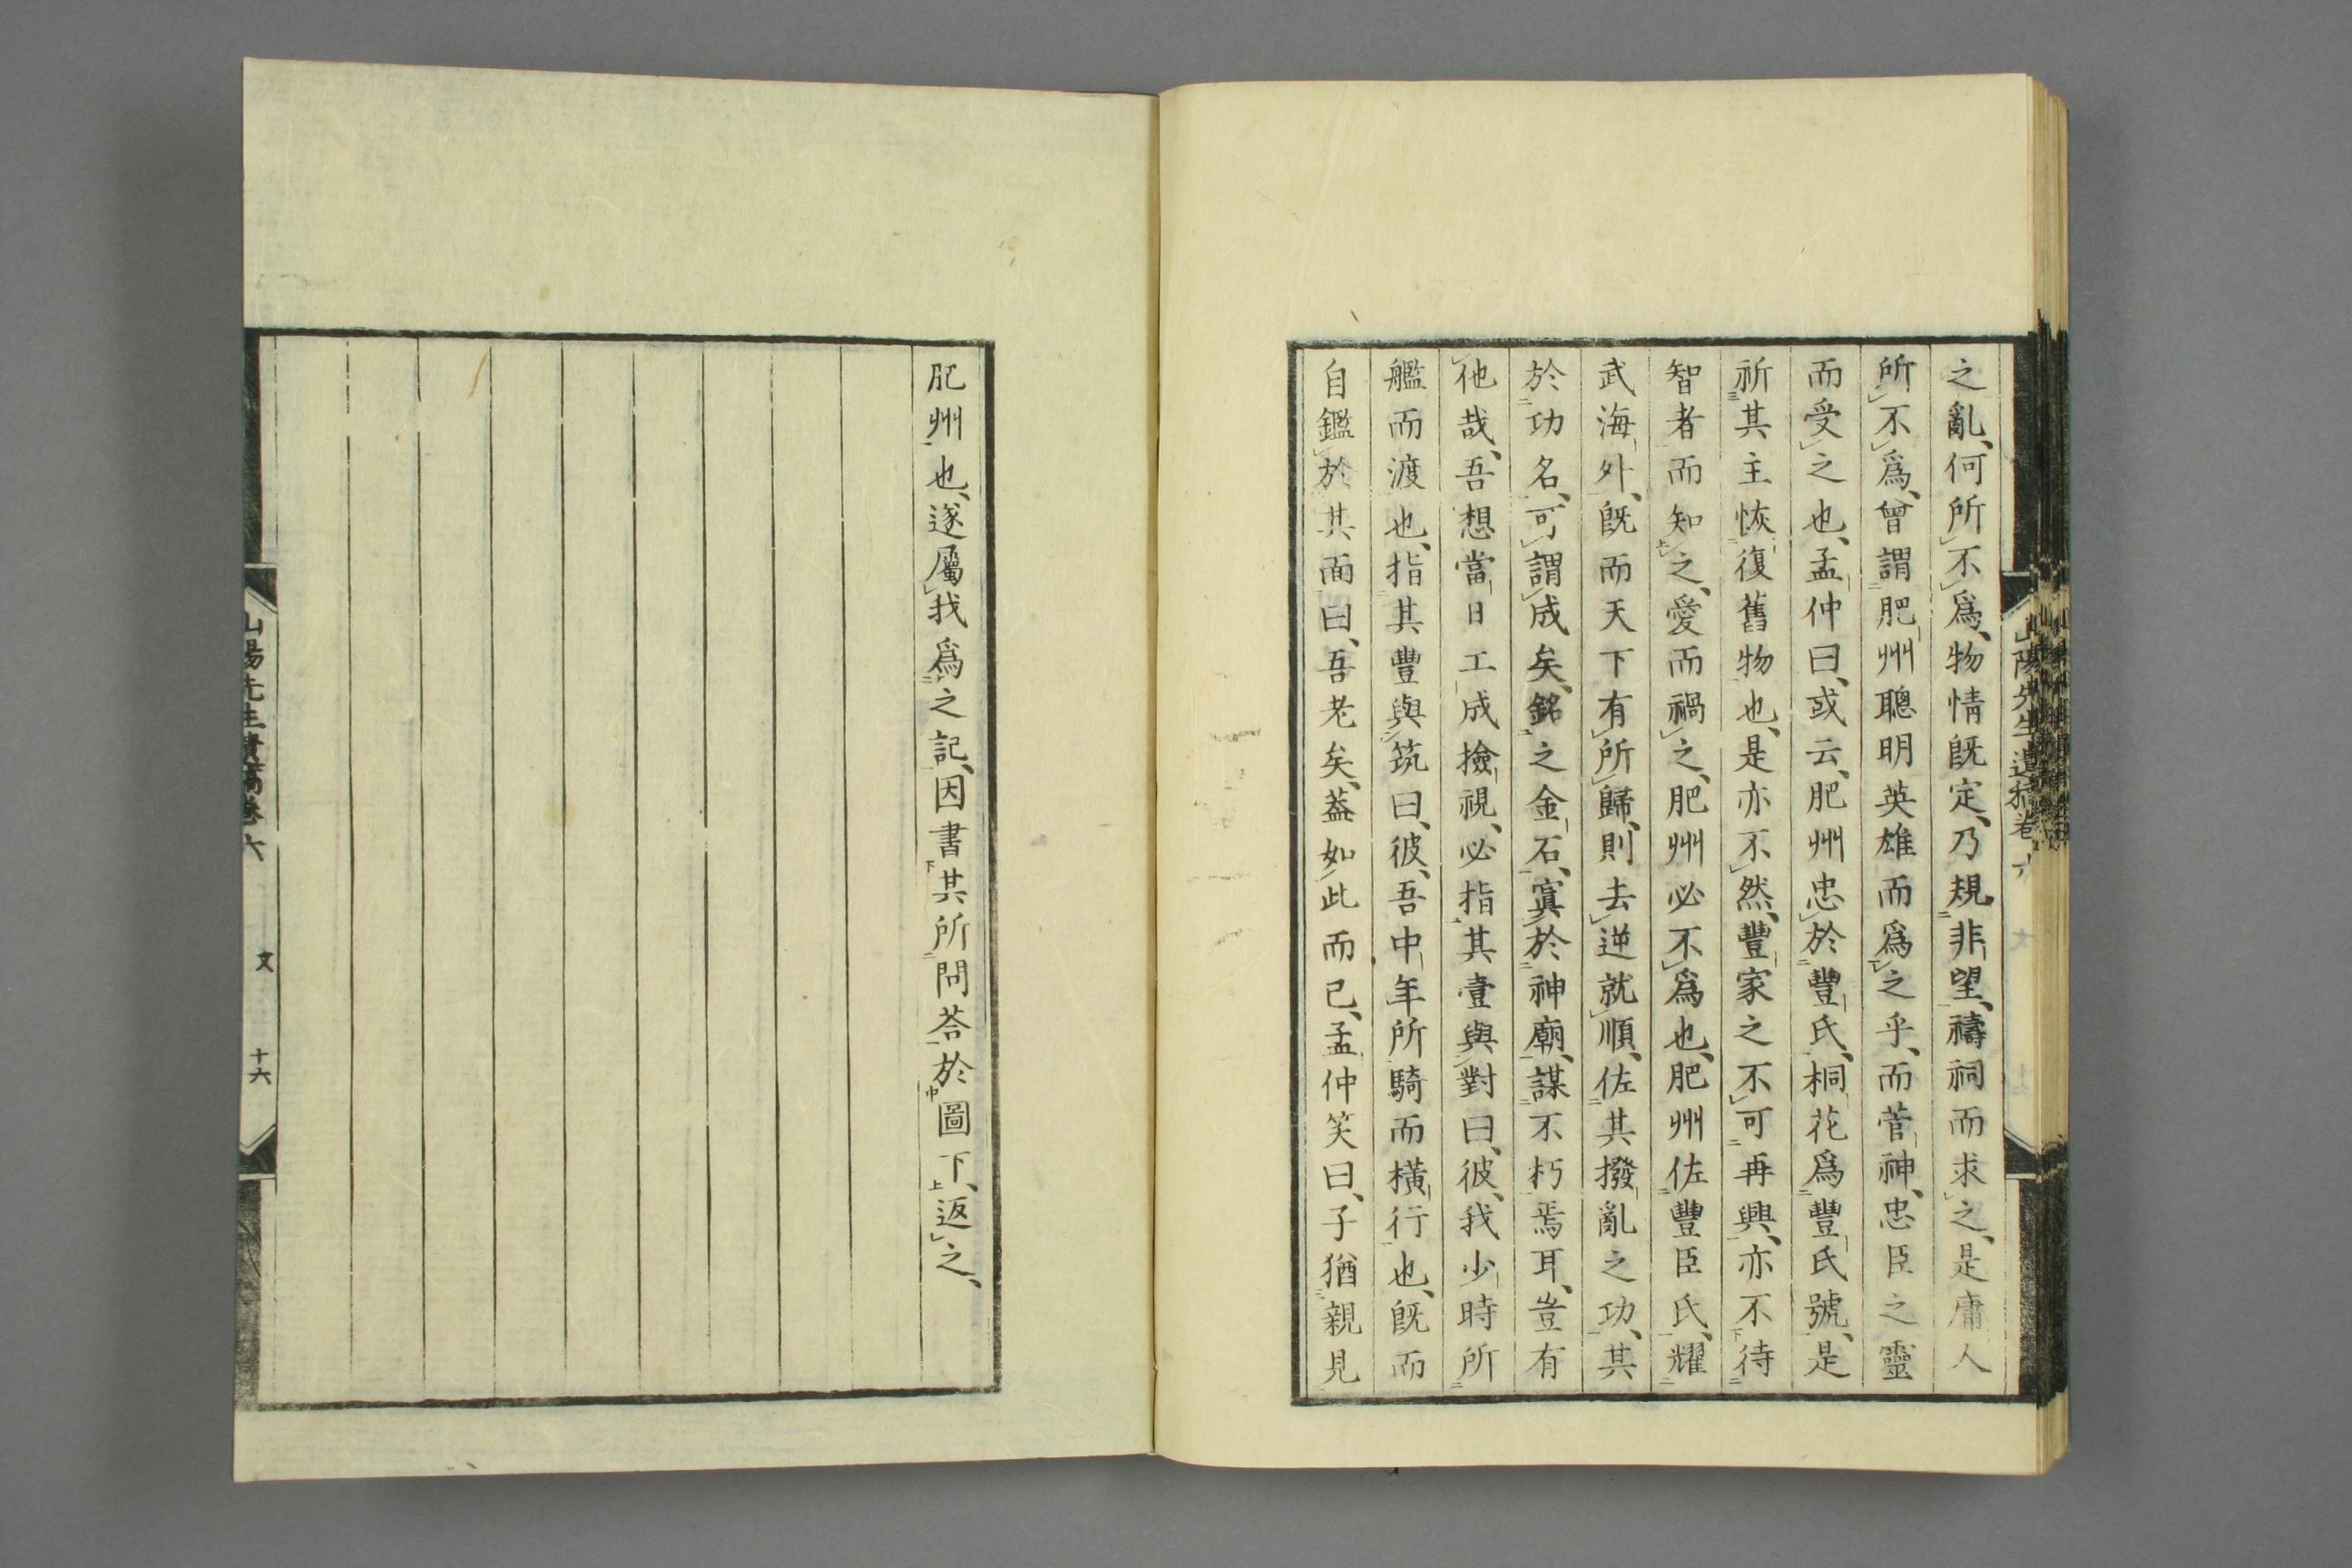 之亂、何所不爲、物情既定、乃規非望、禱祠而求之、是庸人
所不爲、曾謂肥州聰明英雄而爲之乎、而菅神、忠臣之靈
而受之也、孟仲曰、或云、肥州忠於豐氏、桐花爲豐氏號、是
祈其主恢復舊物也、是亦不然、豐家之不可再興、亦不待
智者而知之、愛而禍之、肥州必不爲也、肥州佐豐臣氏、耀
武海外、既而天下有所歸、則去逆就順、佐其撥亂之功、其
於功名、可謂成矣、銘之金石、寘於神廟、謀不朽焉耳、豈有
他哉、吾想當日工成撿視、必指其壹與對曰、彼、我少時所
艦而渡也、指其豐與筑曰、彼、吾中年所騎而橫行也、既而
自鑑於其面曰、吾老矣、葢如此而已、孟仲笑曰、子猶親見
山陽先生遺稿卷六
肥州也、遂屬我爲之記、因書其所問荅於圖下、返之、
山陽先生遺稿卷六 文 十六